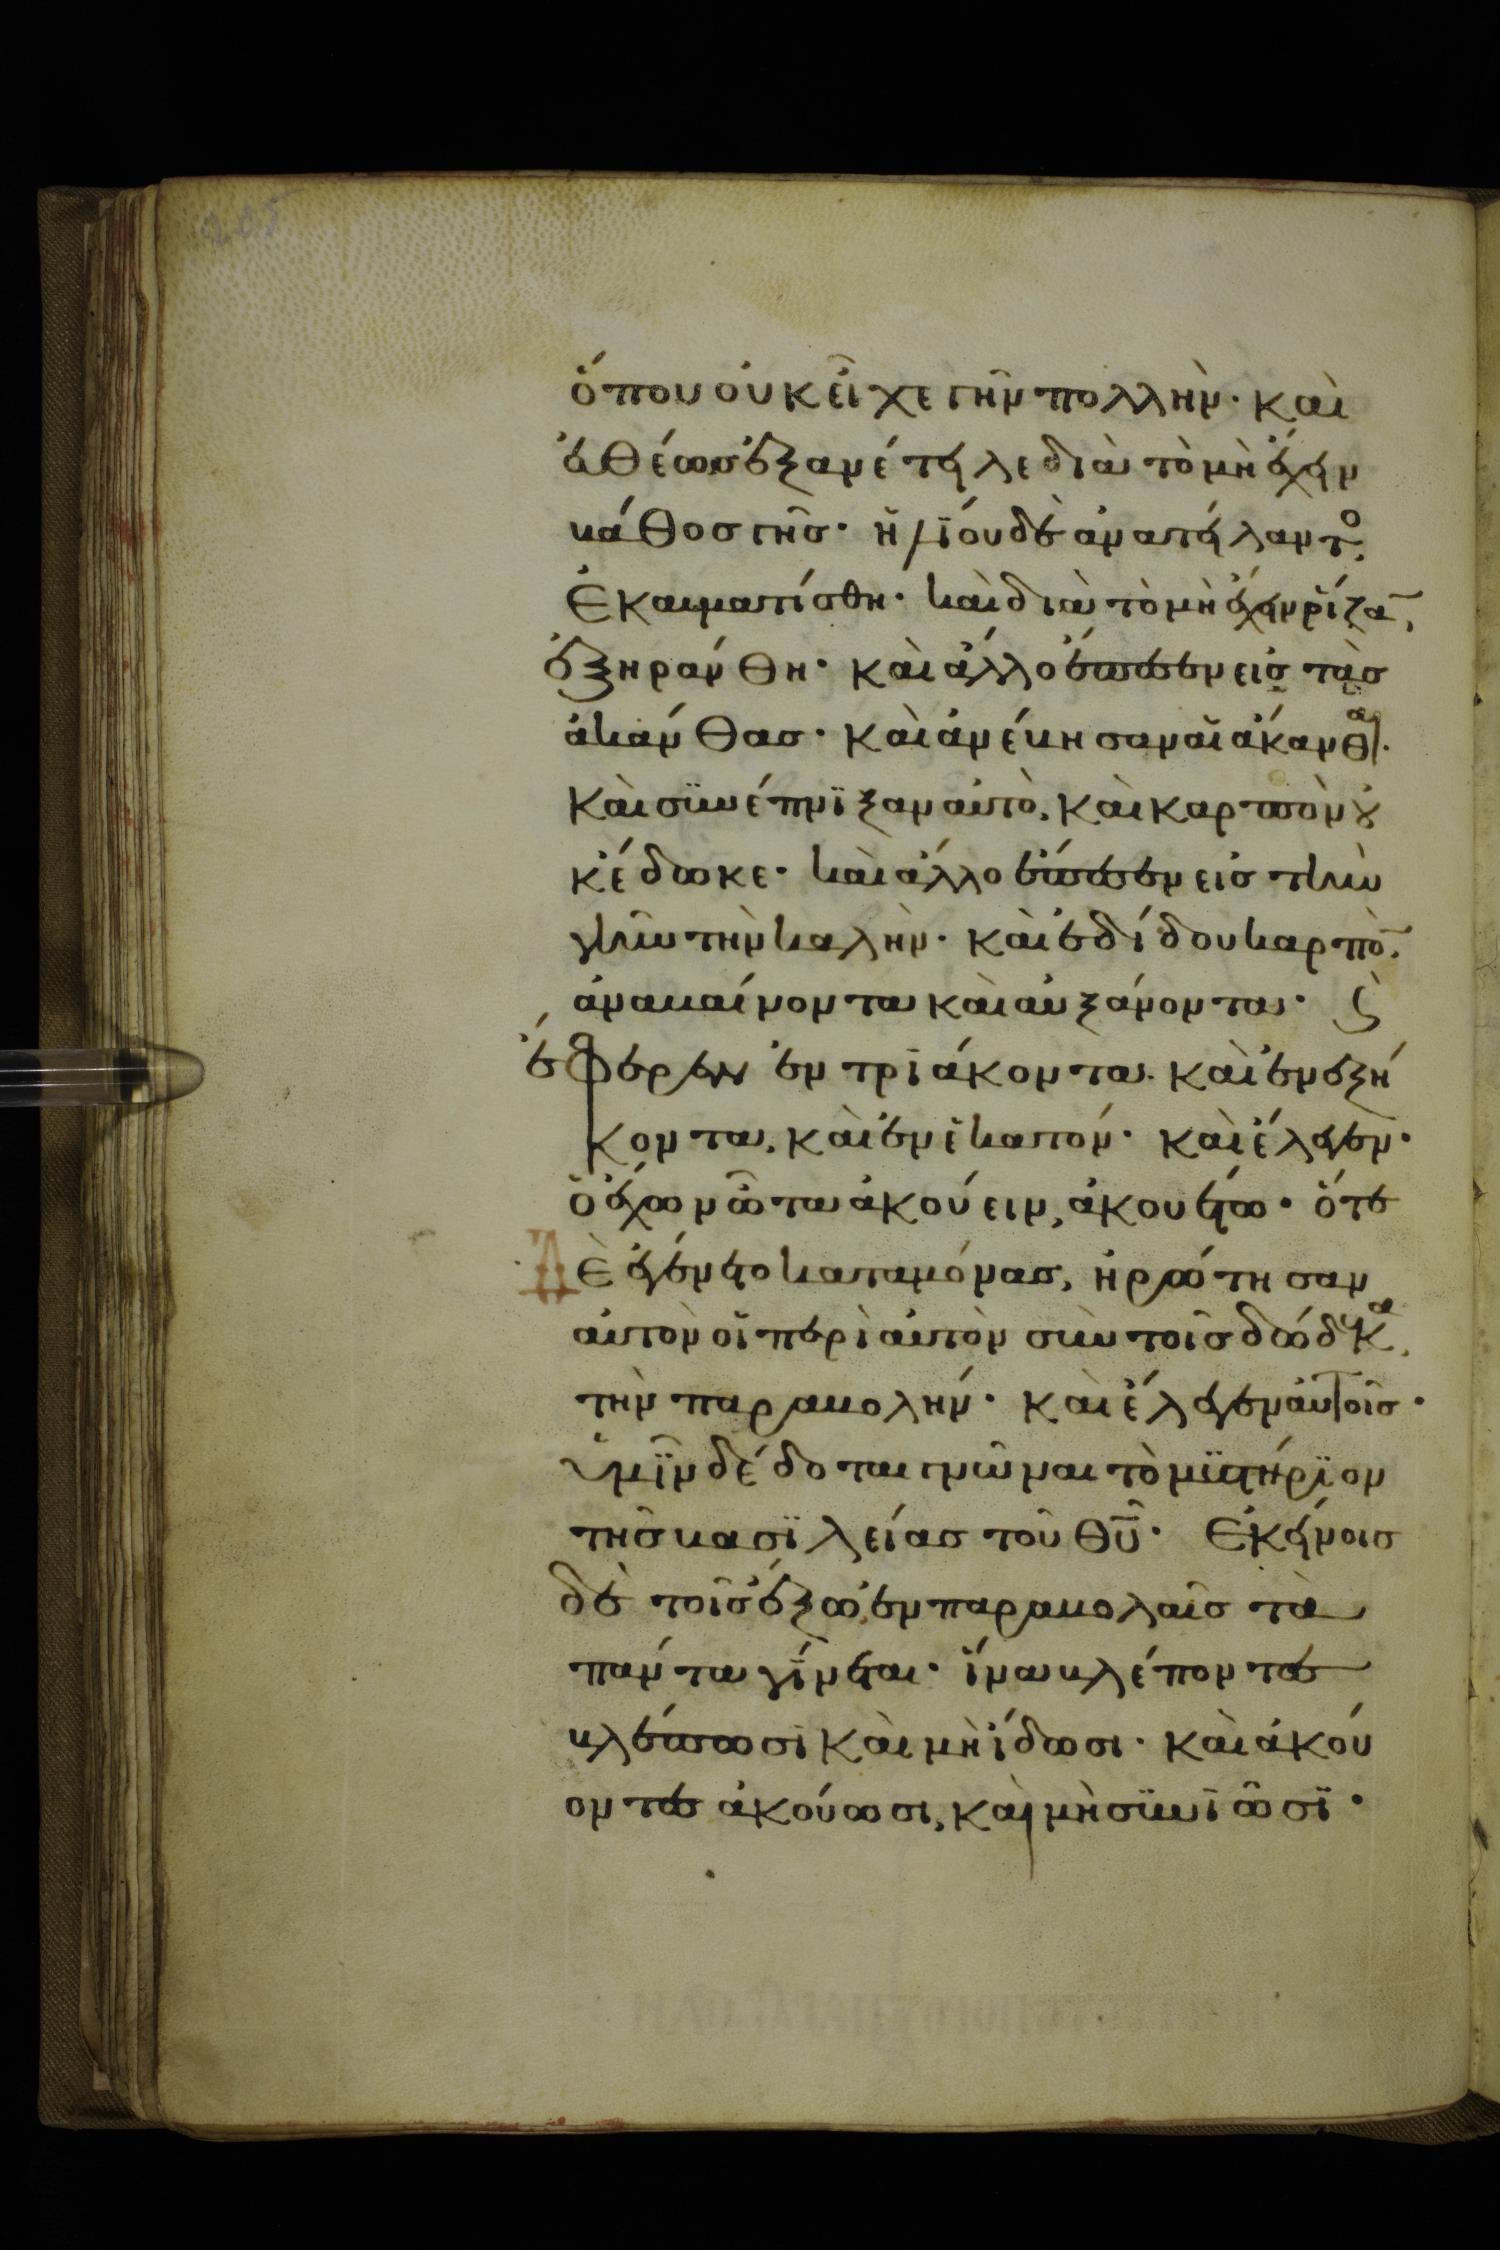 ὅπου οὐκ εἶχε γῆν πολλὴν· καὶ
εὐθέως ἐξανέτειλε διὰ τὸ μὴ ἔχειν
βάθος γῆς· ἡλίου δὲ ἀνατείλαντο,
ἐκαυματίσθη· καὶ διὰ τὸ μὴ ἔχειν ῥίζα̅,
ἐξηράνθη· καὶ ἄλλο ἔπεσεν εἰς τὰς
ἀκάνθας· καὶ ἀνέβησαν αἱ ἄκανθαι·
καὶ συνέπνιξαν αὐτὸ, καὶ καρπὸν οὐ
κ ἔδωκε· καὶ ἄλλο ἔπεσεν εἰς τὴν
γῆν τὴν καλὴν· καὶ ἐδίδου καρπὸ̅,
ἀναβαίνοντα καὶ αὐξάνοντα· ϛ
ἔφερεν ἐν τριάκοντα· καὶ ἐν ἑξή
κοντα, καὶ ἐν ἑκατόν· καὶ ἔλεγεν·
ὁ ἔχων ὦτα ἀκούειν, ἀκουέτω· ὅτε
Δὲ ἐγένετο καταμόνας, ἠρώτησαν
αὐτὸν οἱ περὶ αὐτὸν σὺν τοῖς δώδεκα,
τὴν παραβολήν· καὶ ἔλεγεν αὐτοῖς·
ὑμῖν δέδοται γνῶναι τὸ μυστήριον
τῆς βασιλείας τοῦ θ̅υ̅· ἐκείνοις
δὲ τοῖς ἔξω, ἐν παραβολαῖς τὰ
πάντα γίνεται· ἵνα βλέποντες
βλέπωσι καὶ μὴ ἴδωσι· καὶ ἀκού
οντες ἀκούωσι, καὶ μὴ συνιῶσι·